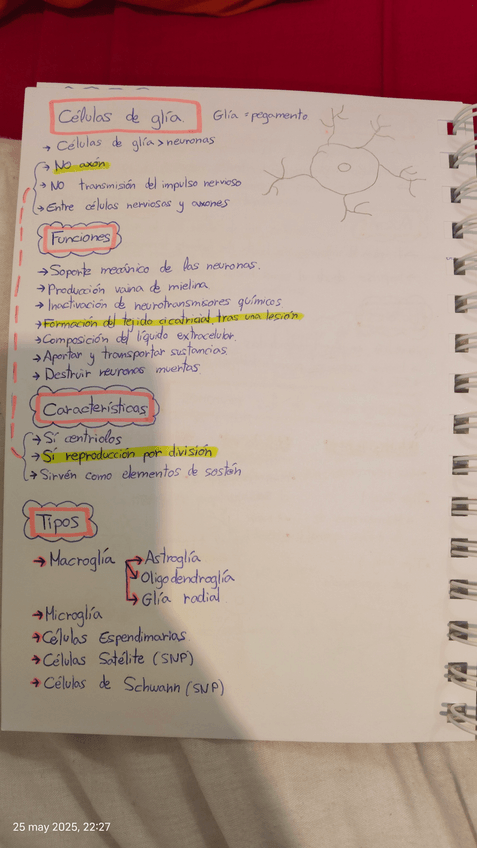 Células de glía. Glía = pegamento
→ Células de glía > neuronas
→ No axón
→ NO transmisión del impulso nervioso
→ Entre células nerviosas y axones
Funciones
→ Soporte mecánico de las neuronas.
→ Producción vaina de mielina
→ Inactivación de neurotransmisores químicos
→ Formación del tejido cicatricial, tras una lesión
→ Composición del líquido extracelular
→ Aportar y transportar sustancias
→ Destruir neuronas muertas
Características
→ Sí centriolos
→ Sí reproducción por división
→ Sirvén como elementos de sostén
Tipos
→ Macroglía → Astroglía
→ Oligodendroglía
→ Glía radial
→ Microglía
→ Células Espendimarias
→ Células Satélite (SNP)
→ Células de Schwann (SNP)
25 may 2025, 22:27